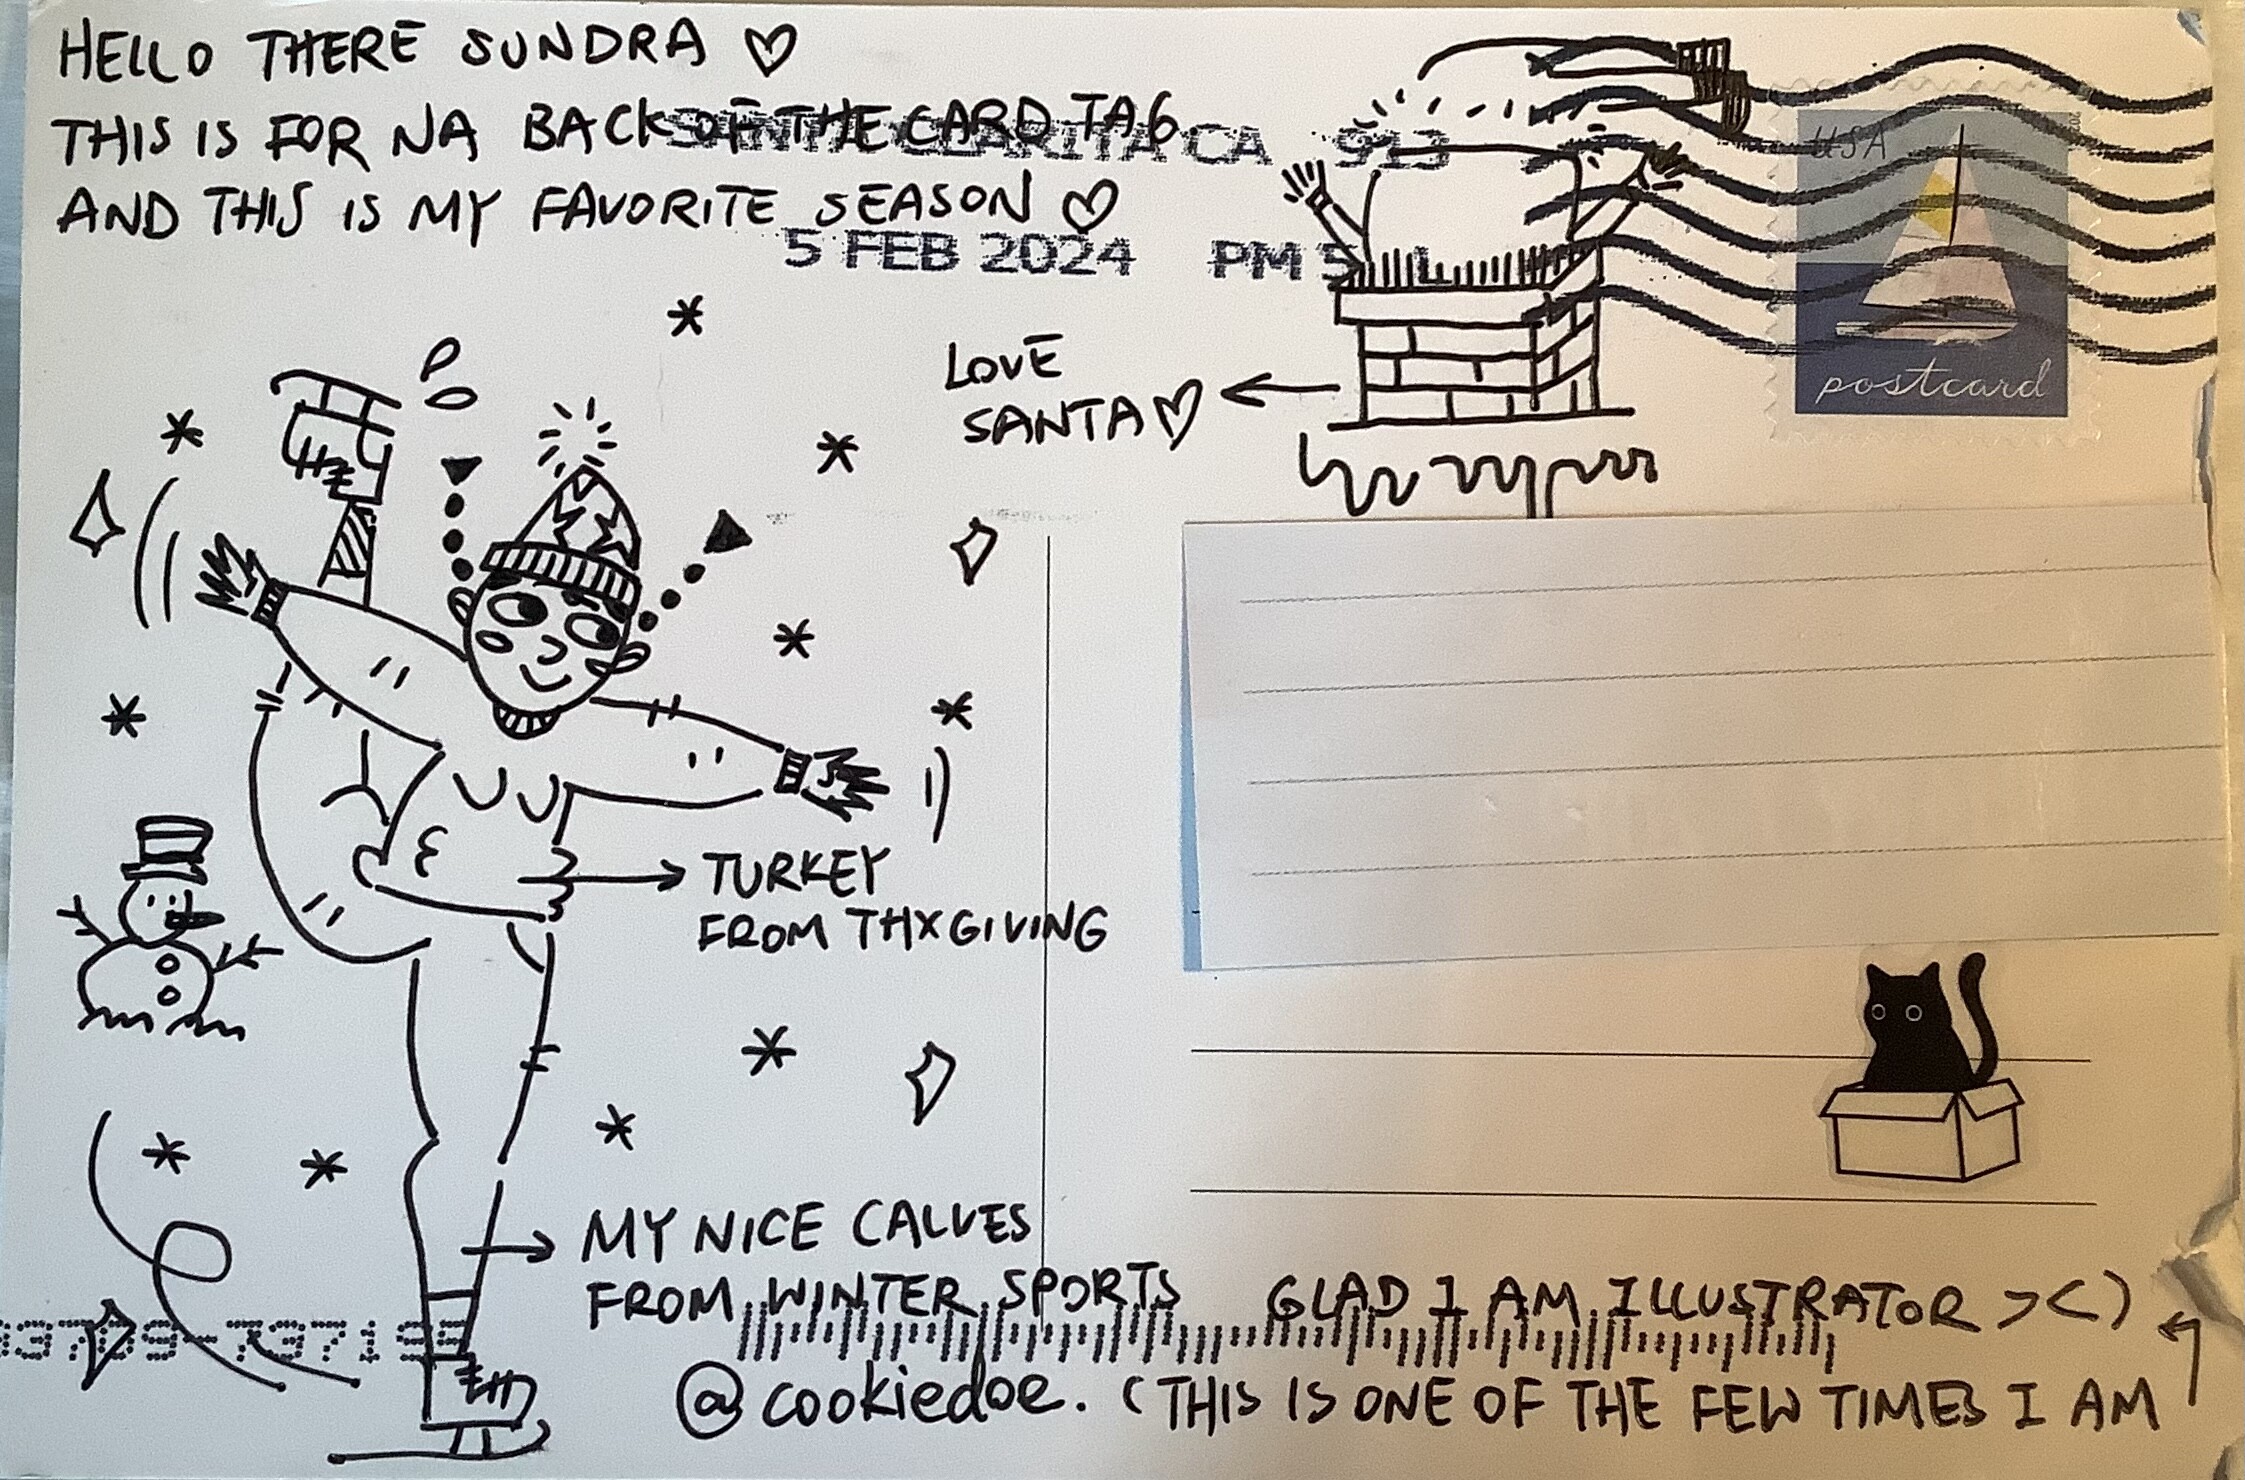 HELLO THERE SUNDRA ♡
THIS IS FOR NA BACK OF THE CARD TAG
AND THIS IS MY FAVORITE SEASON ♡
SANTA CLARITA CA 913
5 FEB 2024 PM 5 L
USA
postcard
LOVE
SANTA ♡
TURKEY
FROM THXGIVING
MY NICE CALVES
FROM WINTER SPORTS
@cookiedoe. (THIS IS ONE OF THE FEW TIMES I AM
GLAD I AM ILLUSTRATOR ><)